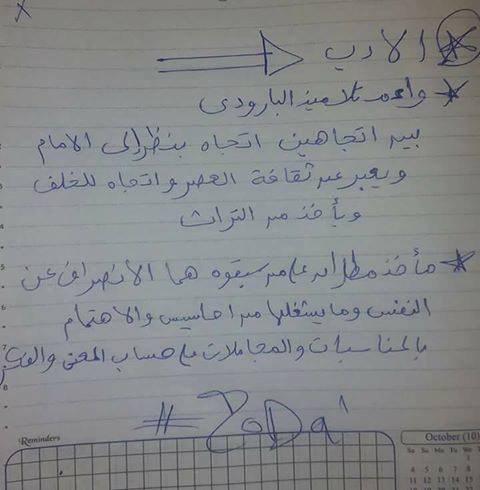 الادب
واءم تلاميذ البارودى
بين اتجاهين اتجاه ينظر الى الامام
ويعبر عن ثقافة العصر واتجاه للخلف
ويأخذ من التراث
مأخذ مطران على من سبقوه هما الانصراف عن
النفس وما يشغلها من احاسيس والاهتمام
بالمناسبات والمجاملات على حساب المعنى والفكر
# ZoDa'
Reminders
October (10)
Su Mo Tu We
1
4 5 6 7 8
11 12 13 14 15